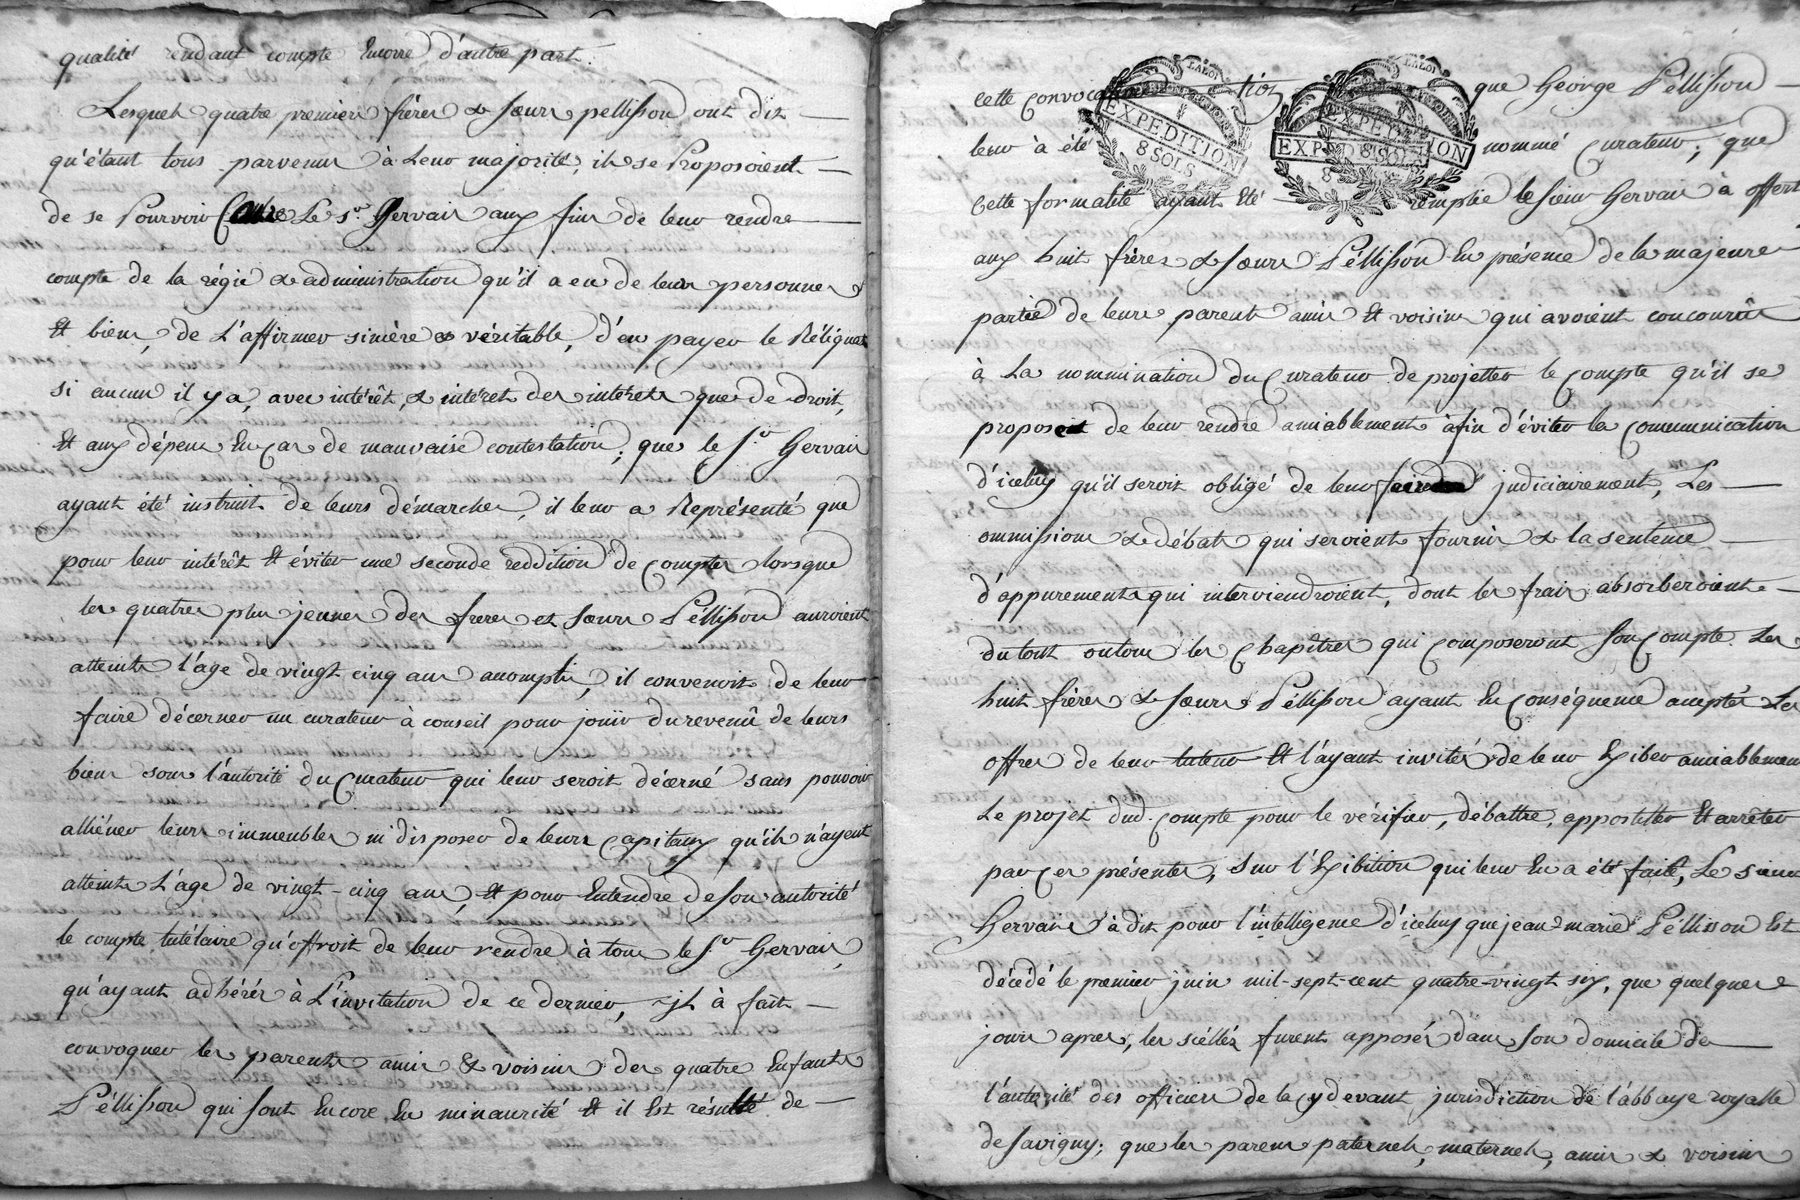 qualité rendant compte Encore d'autre part.
Lesquels quatre premiers frères & sœurs pellisson ont dit
qu'étant tous parvenus à Leur majorité, ils se Proposoient
de se Pourvoir Contre Le Sr. Gervais aux fins de leur rendre
compte de la régie & administration qu'il a eu de leurs personnes
Et biens, de L'affirmer sincère & véritable, d'en payer le Réliquat
si aucun il y a, avec intérêt, & intérêt des intérêts que de droit,
Et aux dépens En cas de mauvaise contestation; que le Sr Gervais
ayant été instruit de leurs démarches, il leur a Représenté que
pour leur intérêt Et éviter une seconde reddition de Comptes lorsque
les quatres plus jeunes des freres et sœurs Péllisson auroient
atteints l'age de vingt cinq ans accomplis, il convenoit de leur
faire décerner un curateur à conseil pour jouir du revenû de leurs
biens sous l'autorité du Curateur qui leur seroit décerné sans pouvoir
alliéner leurs immeubles ni disposer de leurs Capitaux qu'ils n'ayent
atteints L'age de vingt-cinq ans, Et pour Entendre de son autorité
le compte tutélaire qu'offroit de leur rendre à tous le Sr Gervais,
qu'ayant adhérés à L'invitation de ce dernier, il à fait
convoquer les parents amis & voisins des quatre Enfants
Péllisson qui sont Encore En minaurité Et il Est résulté de
cette convocation que George Péllisson
leur à été nommé Curateur, que
Cette formalité ayant Eté remplie le sieur Gervais à offert
aux huit frères & sœurs Péllisson En présence de la majeure
partie de leurs parents amis Et voisins qui avoient concourûs
à La nommination du Curateur de projetter le Compte qu'il se
proposoit de leur rendre amiablement àfin d'éviter la Communication
d'iceluy qu'il seroit obligé de leur faire judiciairement, Les
ommissions & débats qui seroient fournis & la sentence
d'appurements qui interviendroient, dont les frais absorberoient
du tout ou tous les Chapitres qui Composeront son Compte. Les
huit frères & sœurs Péllisson ayant En Conséquence acceptés Les
offres de leur tuteur Et l'ayant invité de leur Exiber amiablement
Le projet dud. Compte pour le vérifier, débattre, appostiller Et arrêter
par Ces présentes, Sur l'Exibition qui leur En a été faite, Le sieur
Gervais à dit pour l'intelligence d'iceluy que jean-marie Péllisson Est
décédé le premier juin mil-sept-cent quatre-vingt six, que quelques
jours apres, les scéllés furent apposés dans son domicile de
l'autorité des officiers de la cy devant jurisdiction de l'abbaye royalle
de savigny; que les parens paternels, maternels, amis & voisins
LA LOI
EXPEDITION
8 SOLS
LA LOI
EXPEDITION
8 SOLS